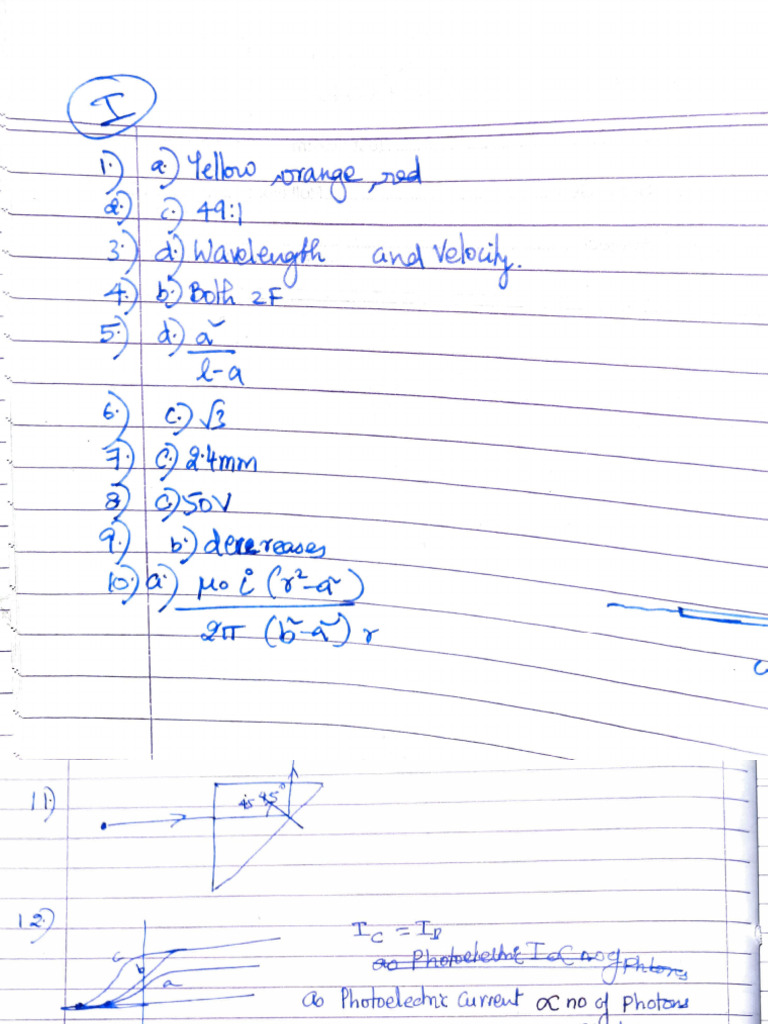 I
1.) a.) Yellow, orange, red
2.) c.) 49:1
3.) d.) Wavelength and Velocity.
4.) b.) Both 2F
5.) d.) a²
l-a
6.) c.) √3
7.) c.) 2.4mm
8.) c.) 50V
9.) b.) decreases
10.) a.) μ₀ i (r²-a²)
2π (b²-a²) r
11.)
45 45°
12.) I_C = I_B
c b a
Photoelectric I ∝ no of Photons
Photoelectric current ∝ no of Photons